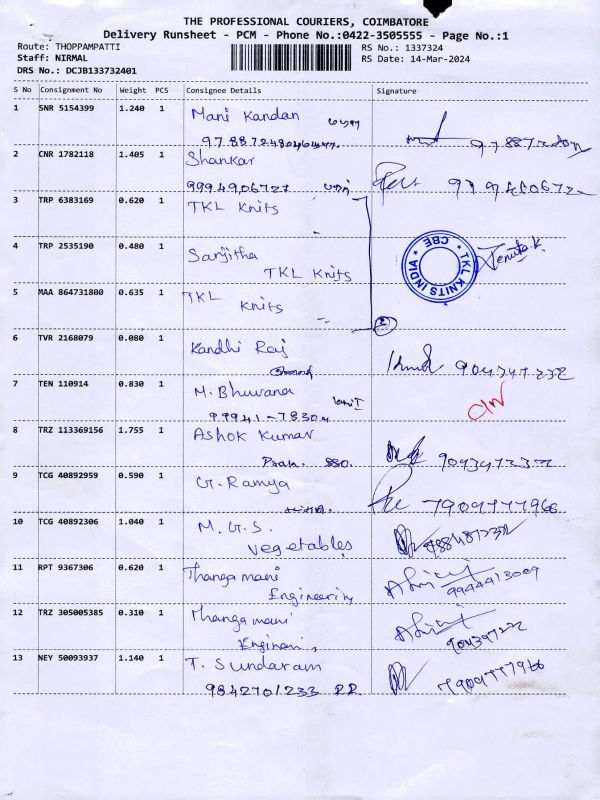 THE PROFESSIONAL COURIERS, COIMBATORE
Delivery Runsheet - PCM - Phone No.:0422-3505555 - Page No.:1
Route: THOPPAMPATTI
Staff: NIRMAL
DRS No.: DCJB133732401
RS No.: 1337324
RS Date: 14-Mar-2024
S No Consignment No Weight PCS Consignee Details Signature
1 SNR 5154399 1.240 1 Mani Kandan
2 CNR 1782118 1.405 1 Shankar
9994906727
3 TRP 6383169 0.620 1 TKL Knits
4 TRP 2535190 0.480 1 Sanjitha
TKL Knits
TKL KNITS INDIA * CBE *
5 MAA 864731800 0.635 1 TKL
Knits
3
6 TVR 2168079 0.080 1 Kandhi Raj
7 TEN 110914 0.830 1 M. Bhuvana
99941-78304
8 TRZ 113369156 1.755 1 Ashok Kumar
9 TCG 40892959 0.590 1 G. Ramya
7909777966
10 TCG 40892306 1.040 1 M. G. S.
vegetables
11 RPT 9367306 0.620 1 Thanga mani
Engineering
9944413009
12 TRZ 305005385 0.310 1 Thanga mani
13 NEY 50093937 1.140 1 T. Sundaram
9842701233
7909777966